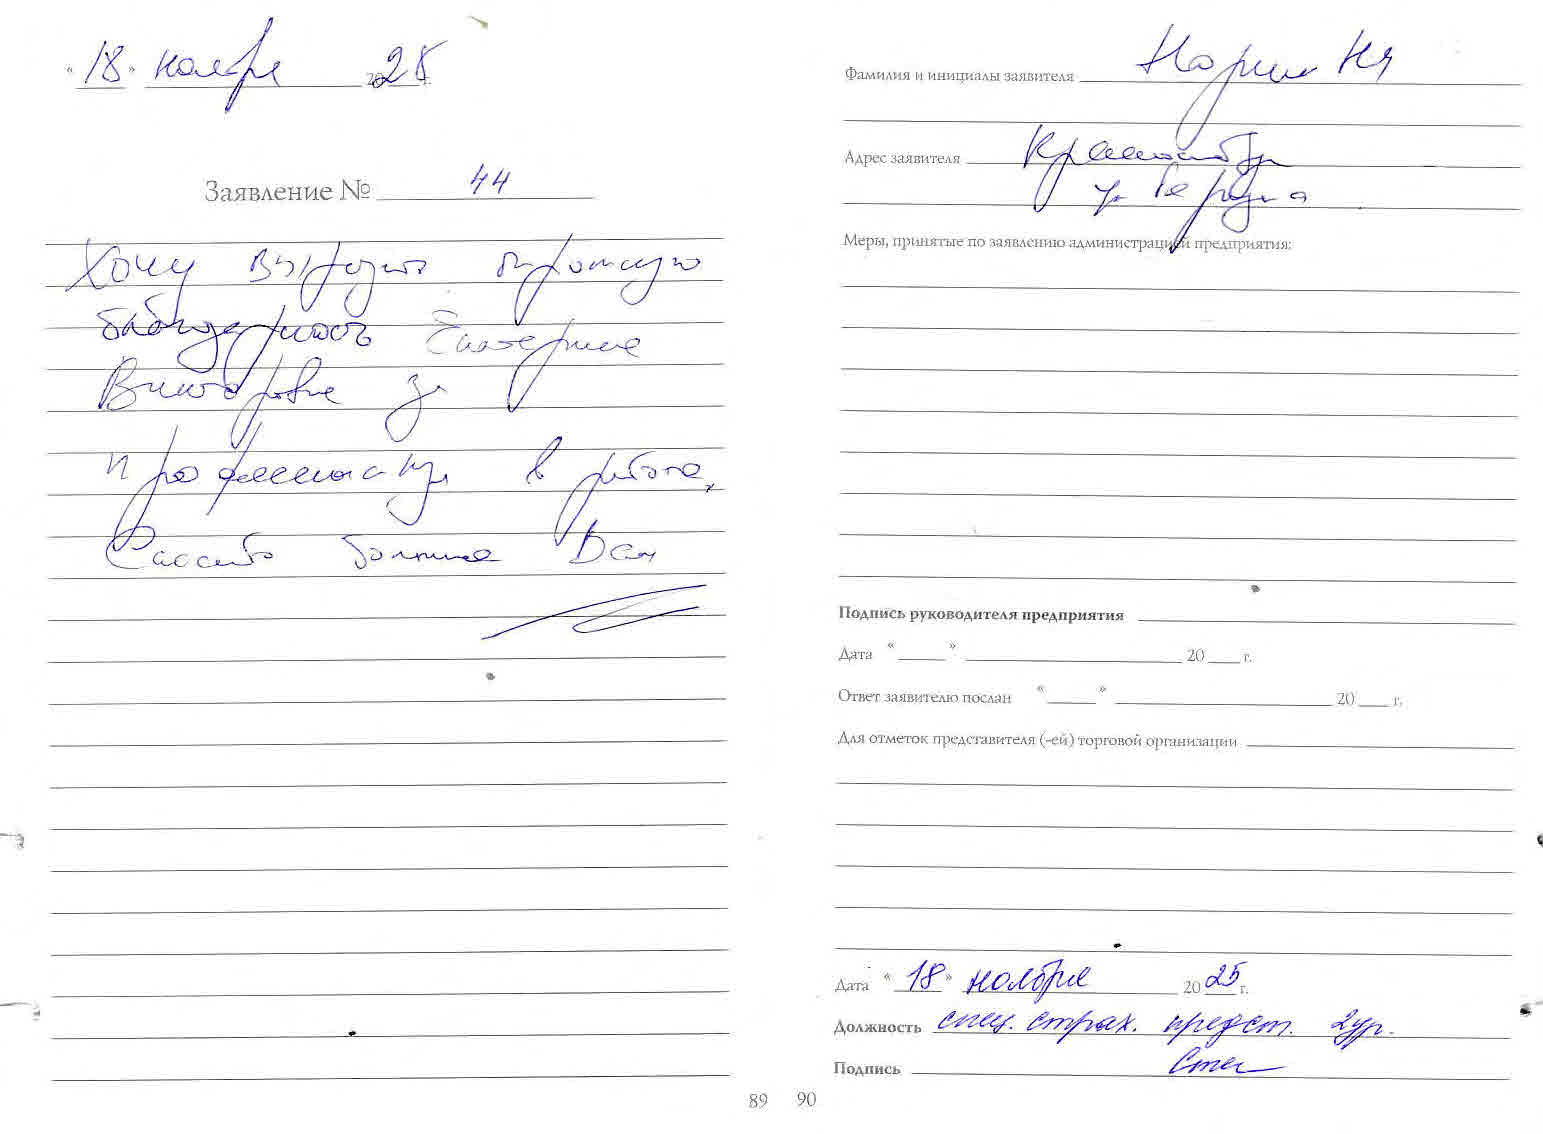 "18" ноября 2025
Заявление № 44
Хочу выразить огромную
благодарность Екатерине
Викторовне за
профессионализм в работе,
Спасибо большое Вам
Фамилия и инициалы заявителя
Адрес заявителя
ул.
Меры, принятые по заявлению администрацией предприятия:
Подпись руководителя предприятия
Дата "___" ___ 20 ___ г.
Ответ заявителю послан "___" ___ 20 ___ г.
Для отметок представителя (-ей) торговой организации
Дата "18" ноября 2025 г.
Должность спец. страх. предст. 2 ур.
Подпись
89 90